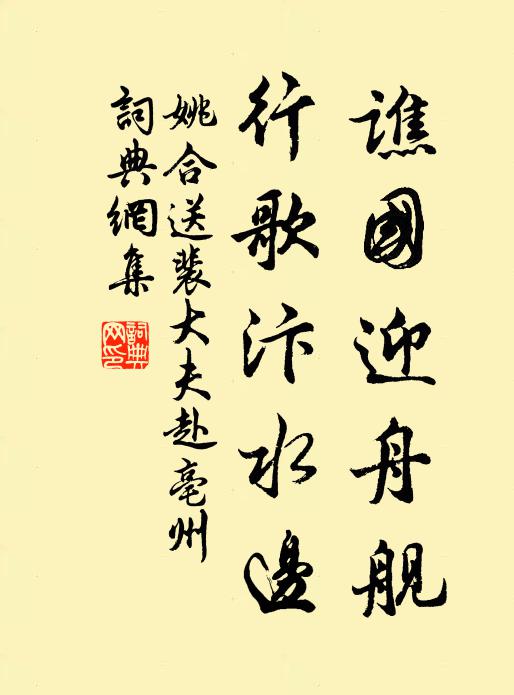 譙國迎舟舰
行歌汴水邊
姚合送裴大夫赴亳州
詞典網集
詞典
网印